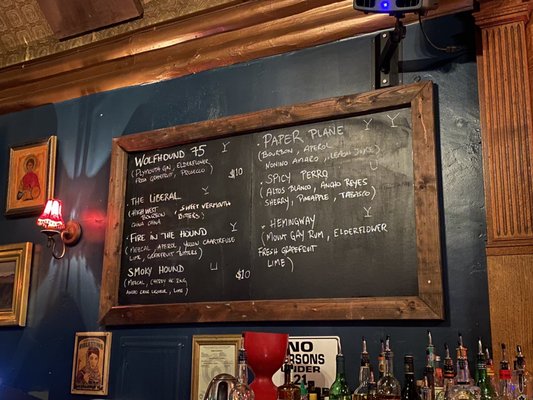 WOLFHOUND 75
(PLYMOUTH GIN, ELDERFLOWER,
FRESH GRAPEFRUIT, PROSECCO)
$10
THE LIBERAL
(HIGH WEST BOURBON, SWEET VERMOUTH
CHINA CHINA BITTERS)
FIRE IN THE HOUND
(MEZCAL, APEROL, YELLOW CHARTREUSE
LIME, GRAPEFRUIT BITTERS)
SMOKY HOUND
$10
(MEZCAL,
ANCHO REYES LIQUEUR, LIME)
PAPER PLANE
(BOURBON, APEROL
NONINO AMARO, LEMON JUICE)
SPICY PERRO
(ALTOS BLANCO, ANCHO REYES
SHERRY, PINEAPPLE, TABASCO)
HEMINGWAY
(MOUNT GAY RUM, ELDERFLOWER
FRESH GRAPEFRUIT
LIME)
NO
PERSONS
UNDER
21